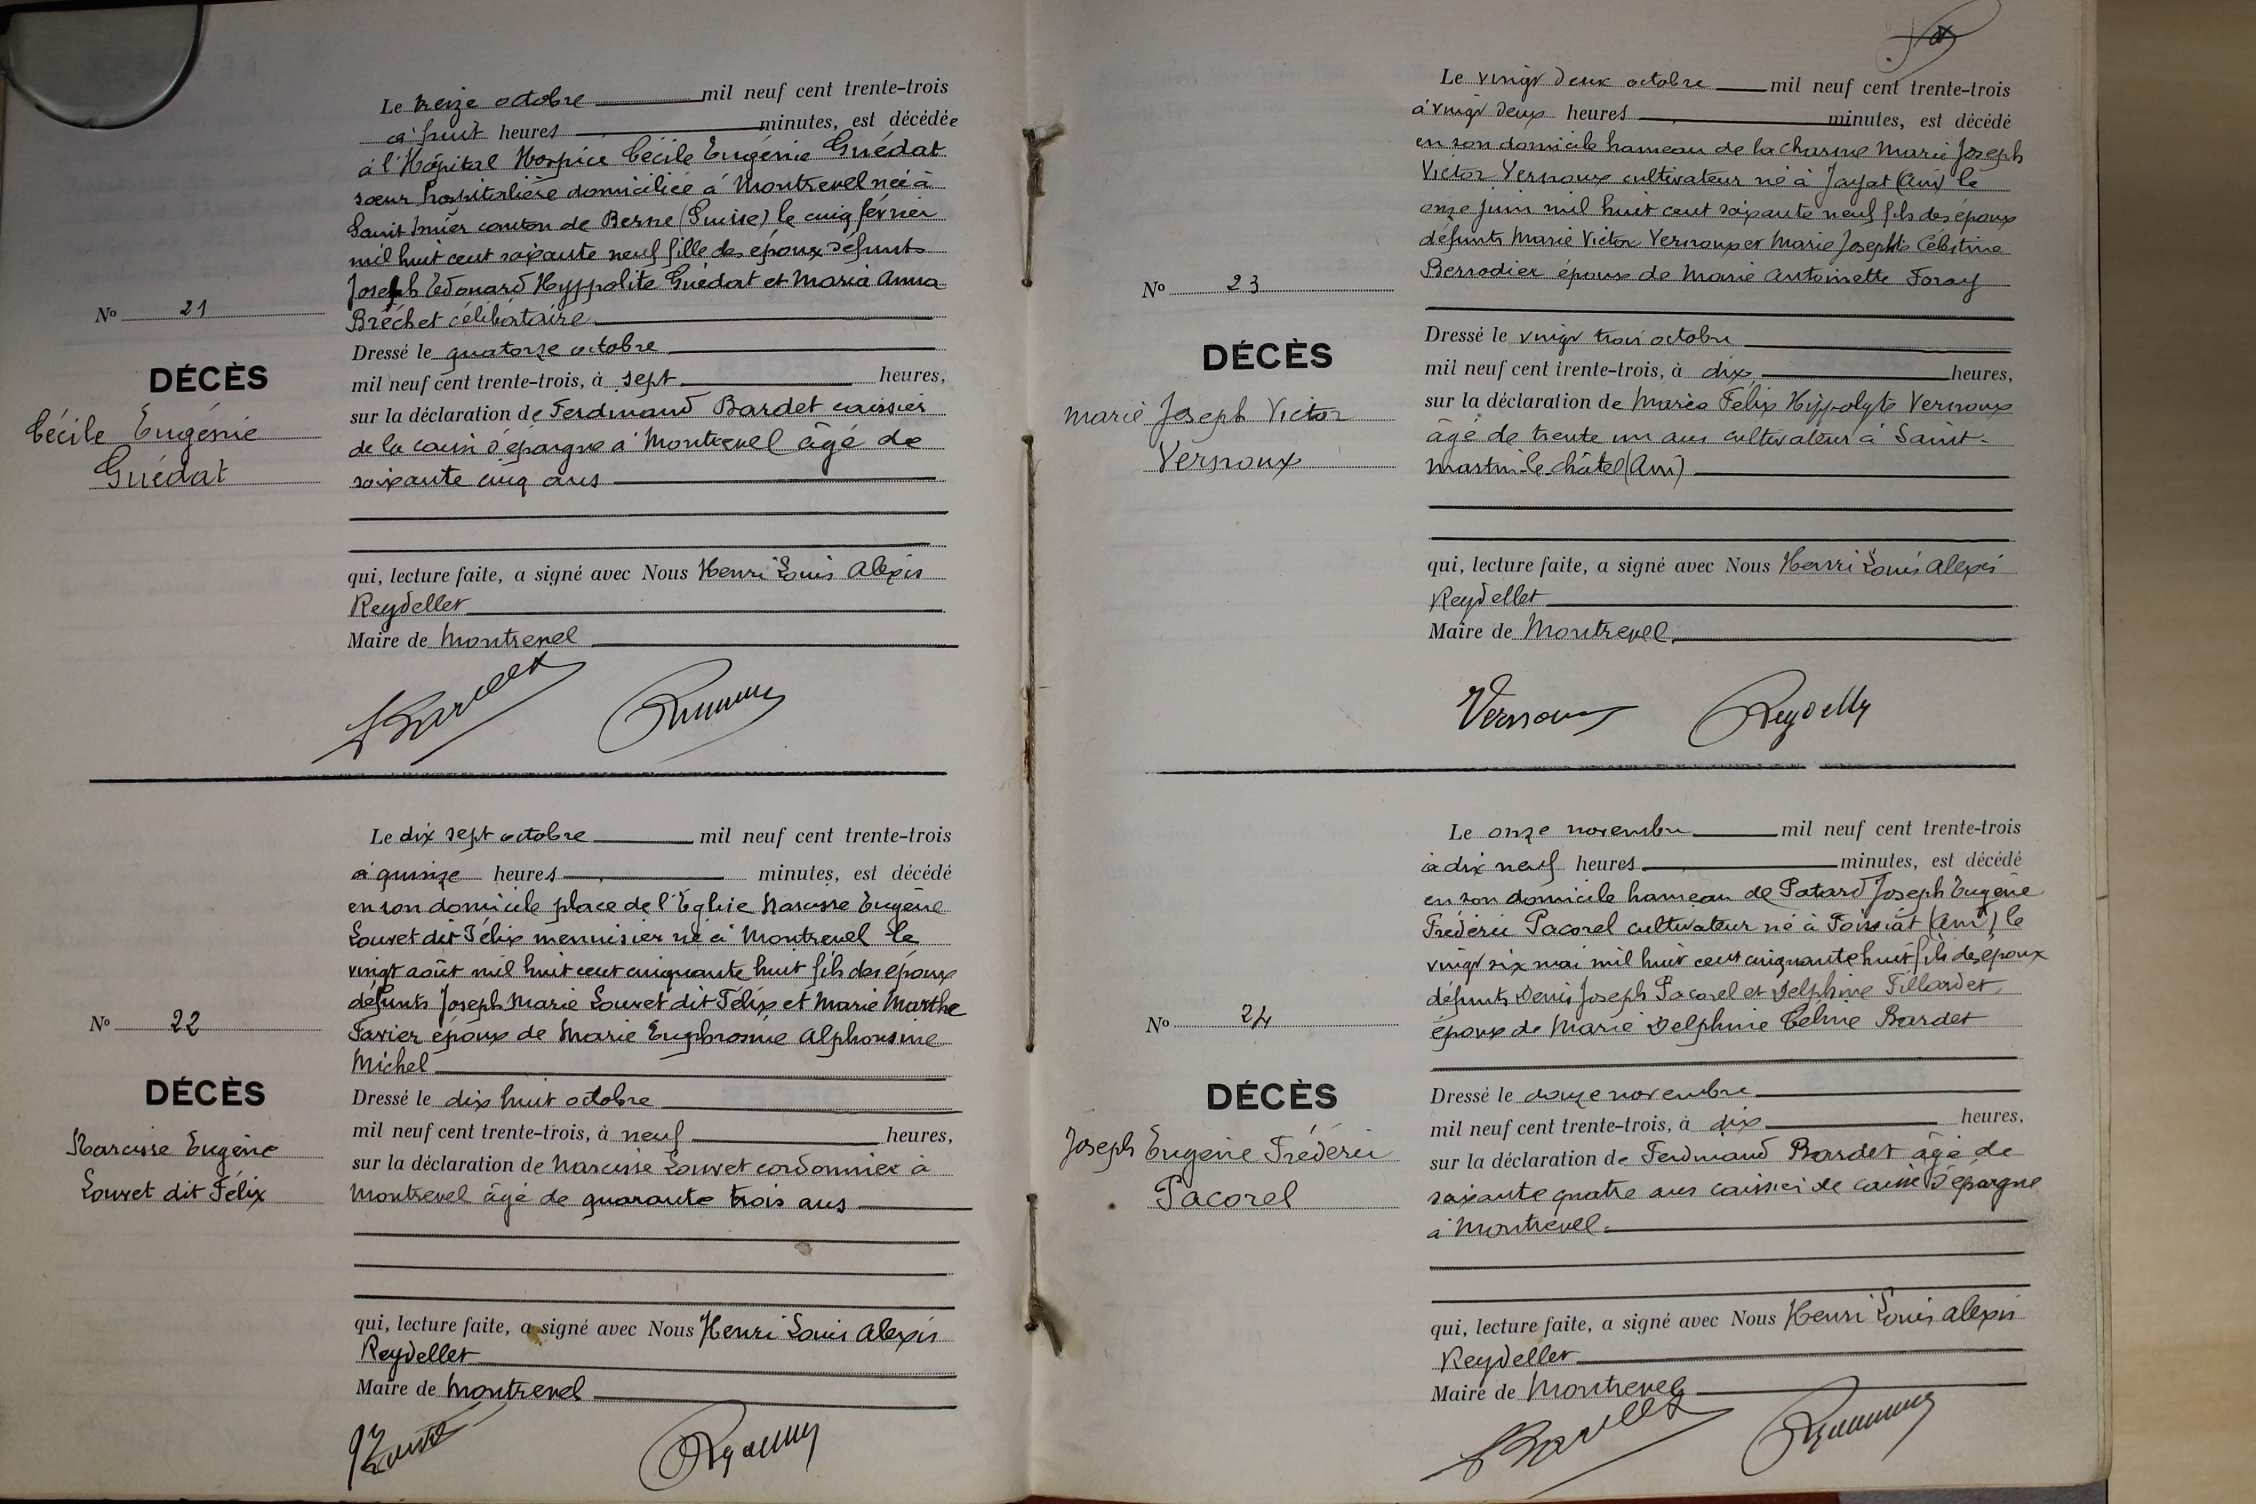 Le treize octobre mil neuf cent trente-trois
à huit heures minutes, est décédée
à l'Hôpital Hospice Cécile Eugénie Guédat
sœur hospitalière domiciliée à Montrevel née à
Saint Imier canton de Berne (Suisse) le cinq février
mil huit cent soixante neuf fille des époux défunts
Joseph Edouard Hyppolite Guédat et Maria Anna
Bréchet célibataire
Nº 21
DÉCÈS
Cécile Eugénie
Guédat
Dressé le quatorze octobre
mil neuf cent trente-trois, à sept heures,
sur la déclaration de Ferdinand Bardet caissier
de la caisse d'épargne à Montrevel âgé de
soixante cinq ans
qui, lecture faite, a signé avec Nous Henri Louis Alexis
Reydellet
Maire de Montrevel
Le dix sept octobre mil neuf cent trente-trois
à quinze heures minutes, est décédé
en son domicile place de l'Eglise Narcisse Eugène
Louvet dit Félix menuisier né à Montrevel le
vingt août mil huit cent cinquante huit fils des époux
défunts Joseph Marie Louvet dit Félix et Marie Marthe
Favier époux de Marie Euphrosine Alphonsine
Michel
Nº 22
DÉCÈS
Narcisse Eugène
Louvet dit Félix
Dressé le dix huit octobre
mil neuf cent trente-trois, à neuf heures,
sur la déclaration de Narcisse Louvet cordonnier à
Montrevel âgé de quarante trois ans
qui, lecture faite, a signé avec Nous Henri Louis Alexis
Reydellet
Maire de Montrevel
Le vingt deux octobre mil neuf cent trente-trois
à vingt deux heures minutes, est décédé
en son domicile hameau de la Charme Marie Joseph
Victor Vernoux cultivateur né à Jayat (Ain) le
onze juin mil huit cent soixante neuf fils des époux
défunts Marie Victor Vernoux et Marie Josephte Célestine
Berrodier époux de Marie Antoinette Foray
Nº 23
DÉCÈS
Marie Joseph Victor
Vernoux
Dressé le vingt trois octobre
mil neuf cent trente-trois, à dix heures,
sur la déclaration de Marie Félix Hippolyte Vernoux
âgé de trente un ans cultivateur à Saint-
Martin-le-Châtel (Ain)
qui, lecture faite, a signé avec Nous Henri Louis Alexis
Reydellet
Maire de Montrevel
Vernoux Reydellet
Le onze novembre mil neuf cent trente-trois
à dix neuf heures minutes, est décédé
en son domicile hameau de Patard Joseph Eugène
Frédéric Pacorel cultivateur né à Foissiat (Ain) le
vingt six mai mil huit cent cinquante huit fils des époux
défunts Denis Joseph Pacorel et Delphine Fillardet
époux de Marie Delphine Céline Bardet
Nº 24
DÉCÈS
Joseph Eugène Frédéric
Pacorel
Dressé le douze novembre
mil neuf cent trente-trois, à dix heures,
sur la déclaration de Ferdinand Bardet âgé de
soixante quatre ans caissier de caisse d'épargne
à Montrevel
qui, lecture faite, a signé avec Nous Henri Louis Alexis
Reydellet
Maire de Montrevel